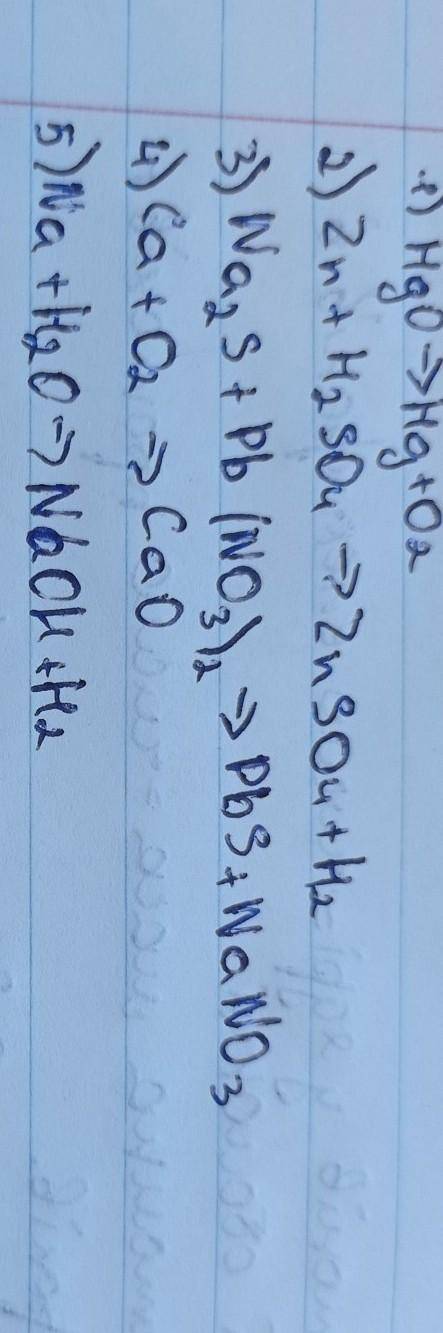 1) HgO → Hg + O₂
2) Zn + H₂SO₄ → ZnSO₄ + H₂
3) Na₂S + Pb(NO₃)₂ → PbS + NaNO₃
4) Ca + O₂ → CaO
5) Na + H₂O → NaOH + H₂